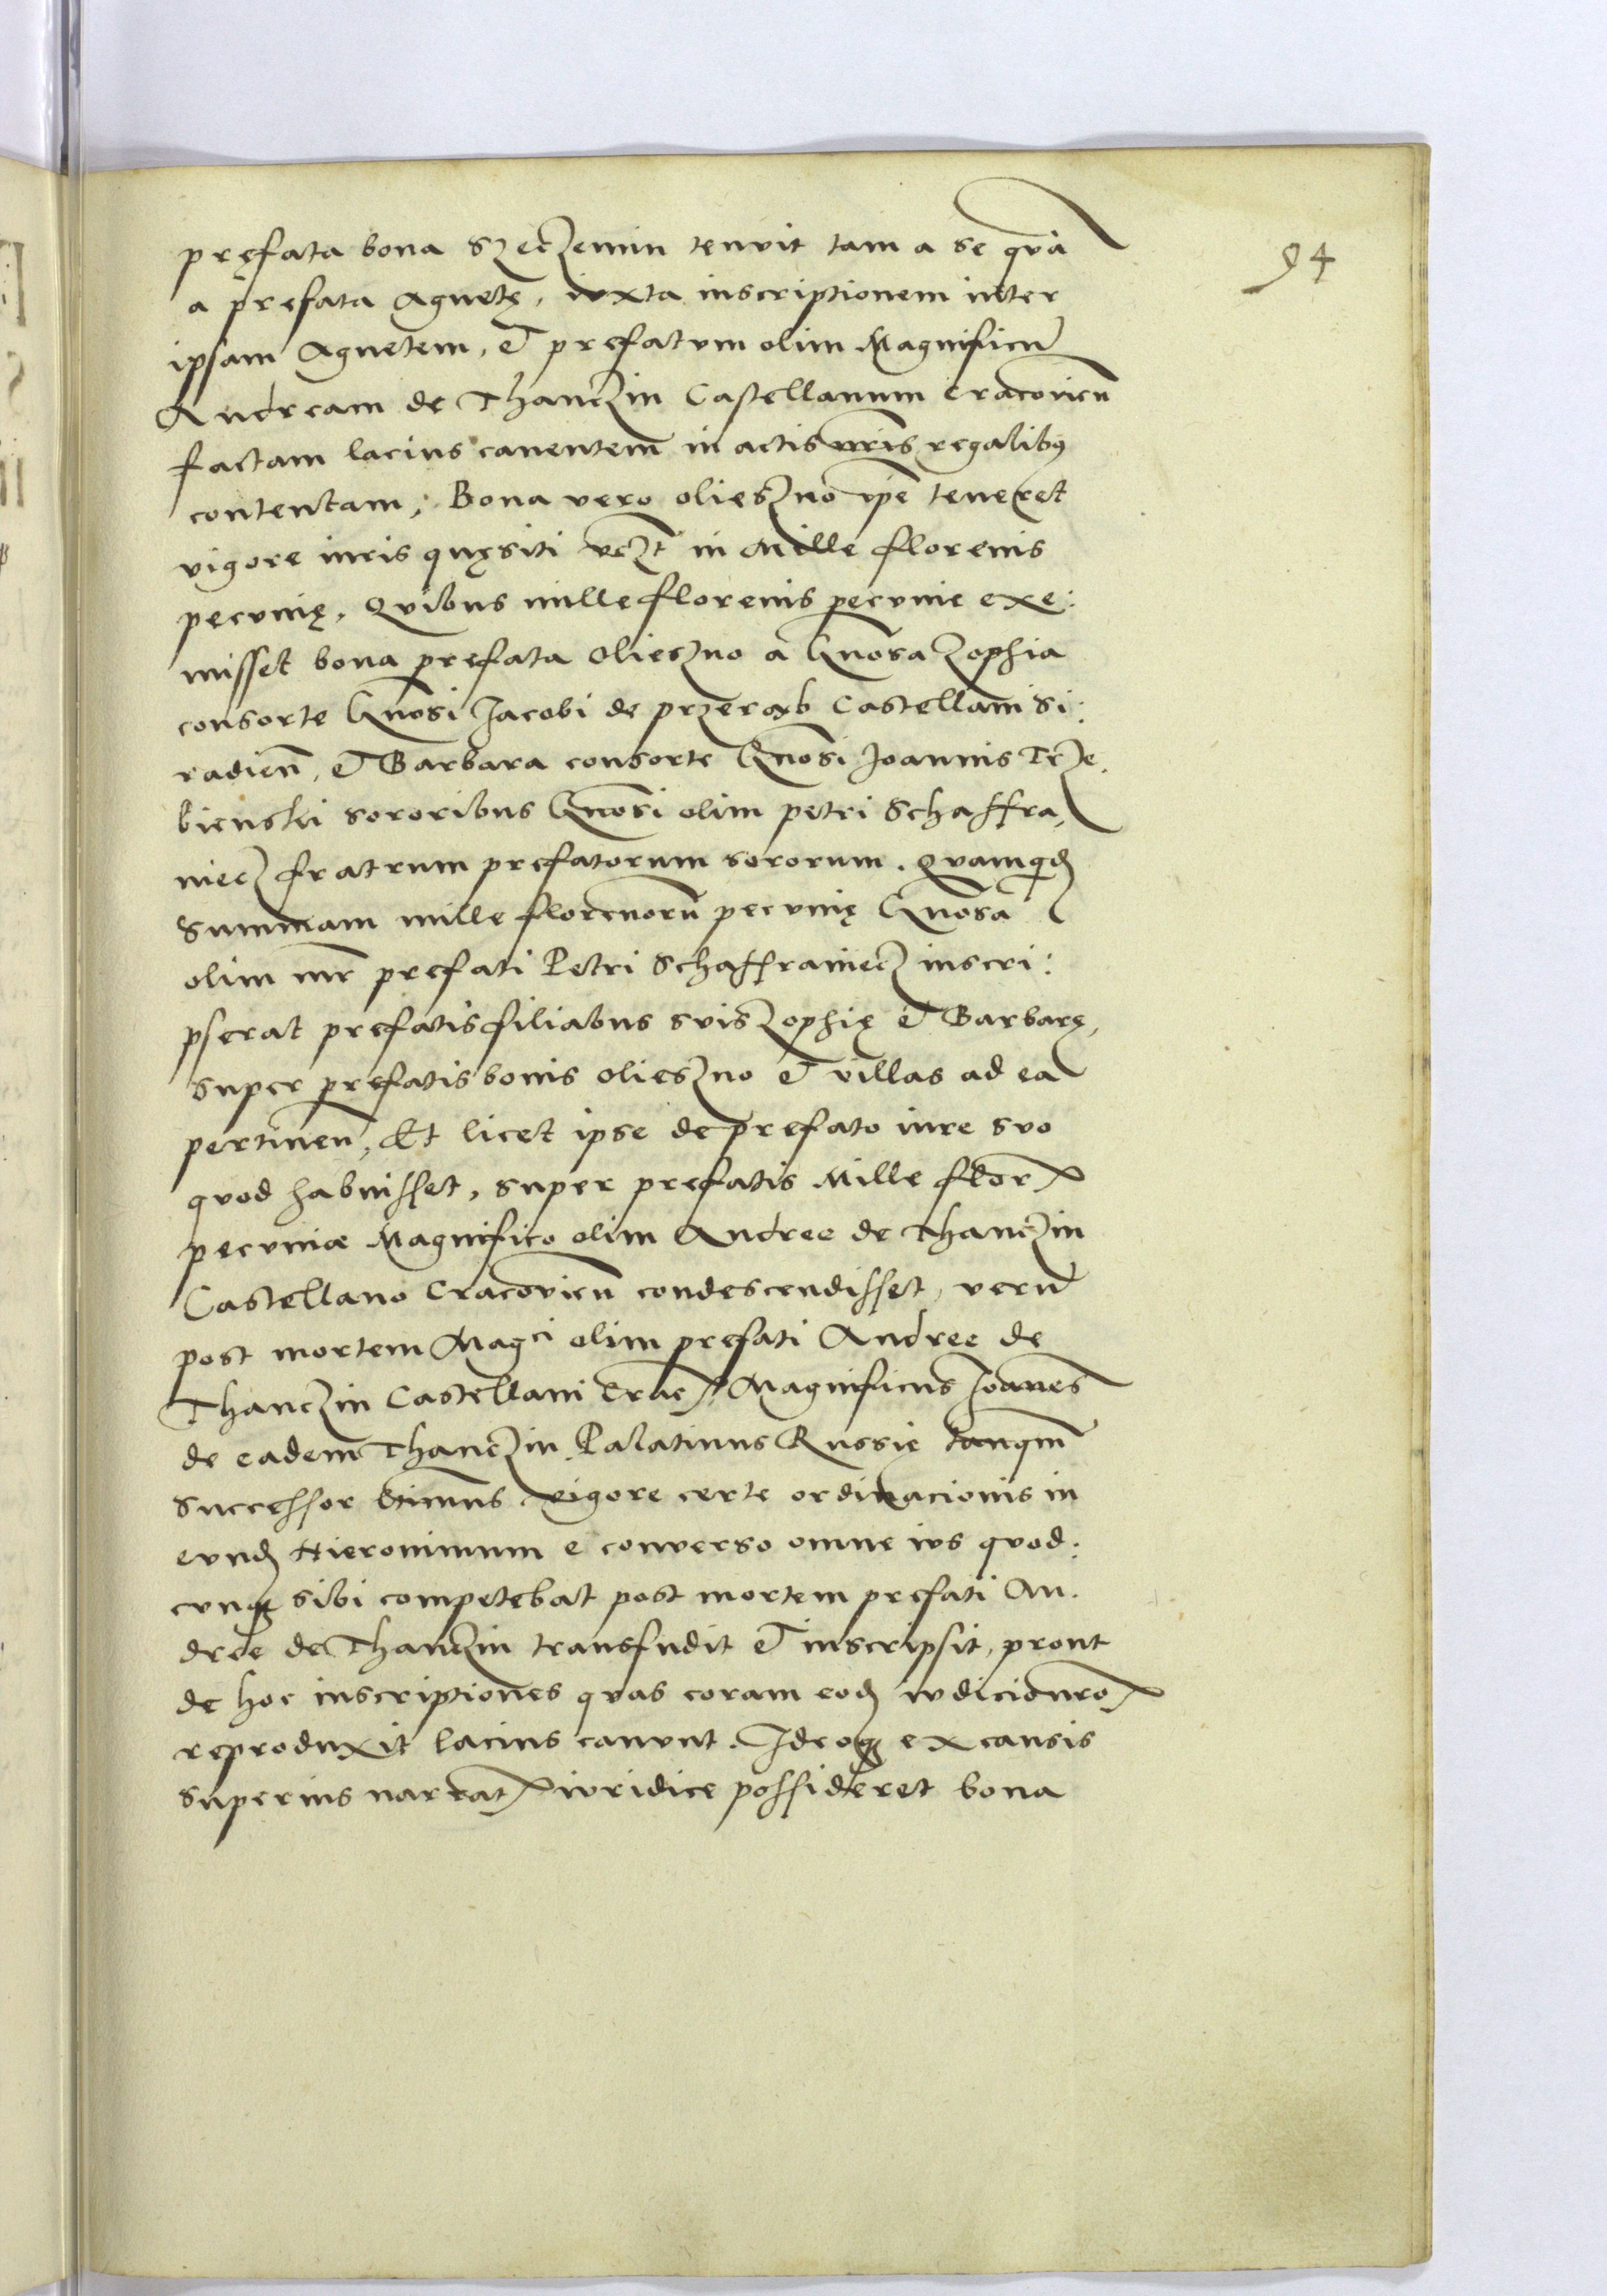 94
pręfata bona Szeczemin tenuit tam a se quā
a prefata Agnetę, iuxta inscriptionem inter
ipsam Agnetem, et prefatum olim Magnificū
Andream de Thanczin Castellanum Cracovien̄
factam lacius canentem in actis nr̄is regalibꝰ
contentam; Bona vero oliesno ip̄e teneret
vigore iuris quęsiti in Mille florenis
pecunię, Quibus mille florenis pecunie exe:
misset bona prefata oliesno a Gn̄osa Zophia
consorte Gn̄osi Jacobi de przeramb Castellani Si:
radien̄, et Barbara consorte Gn̄osi Joannis Trze
bienski sororibus Gn̄osi olim petri Schaffra,
niecz fratrum prefatorum sororum. Quamqꝫ
Summam mille florenorū pecunię Gn̄osa
olim mr̄ prefati Petri Schaffraniecz inscri:
pserat prefatis filiabus suis Zophię et Barbarę,
super prefatis bonis oliesno et villas ad ea
pertinen̄, Et licet ipse de prefato iure suo
quod habuisset, super prefatis Mille flor
pecuniæ Magnifico olim Andree de Thanczin
Castellano Cracovien̄ condescendisset, verū
post mortem Magci olim prefati Andree de
Thanczin Castellani Crac Magnificus Joānes
de eadem Thanczin Palatinus Russię tanqm̄
Successor ltimus vigore certe ordinacionis in
eundꝫ Hieronimum e converso omne ius quod:
cunqꝫ sibi competebat post mortem prefati An.
dree de Thanczin transfudit et inscripsit, prout
de hoc inscriptiones quas coram eodꝫ iudicio nr̄o
reproduxit lacius canunt. Ideoqꝫ ex causis
superius narrat iuridice possideret bona